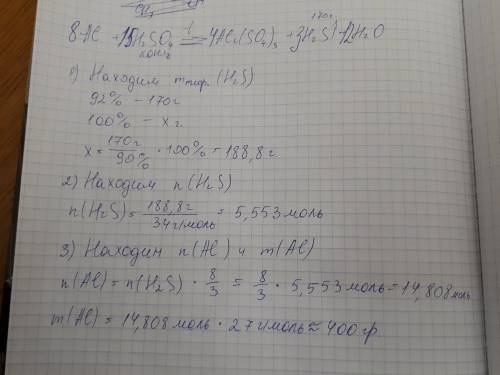 170г
8Al + 15H₂SO₄ конц = 4Al₂(SO₄)₃ + 3H₂S↑ + 12H₂O
1) Находим mтеор. (H₂S)
92% – 170г
100% – x г
x = 170г/90% · 100% = 188,8г
2) Находим n(H₂S)
n(H₂S) = 188,8г/34г/моль = 5,553моль
3) Находим n(Al) и m(Al)
n(Al) = n(H₂S) · 8/3 = 8/3 · 5,553моль = 14,808моль
m(Al) = 14,808моль · 27г/моль ≈ 400гр